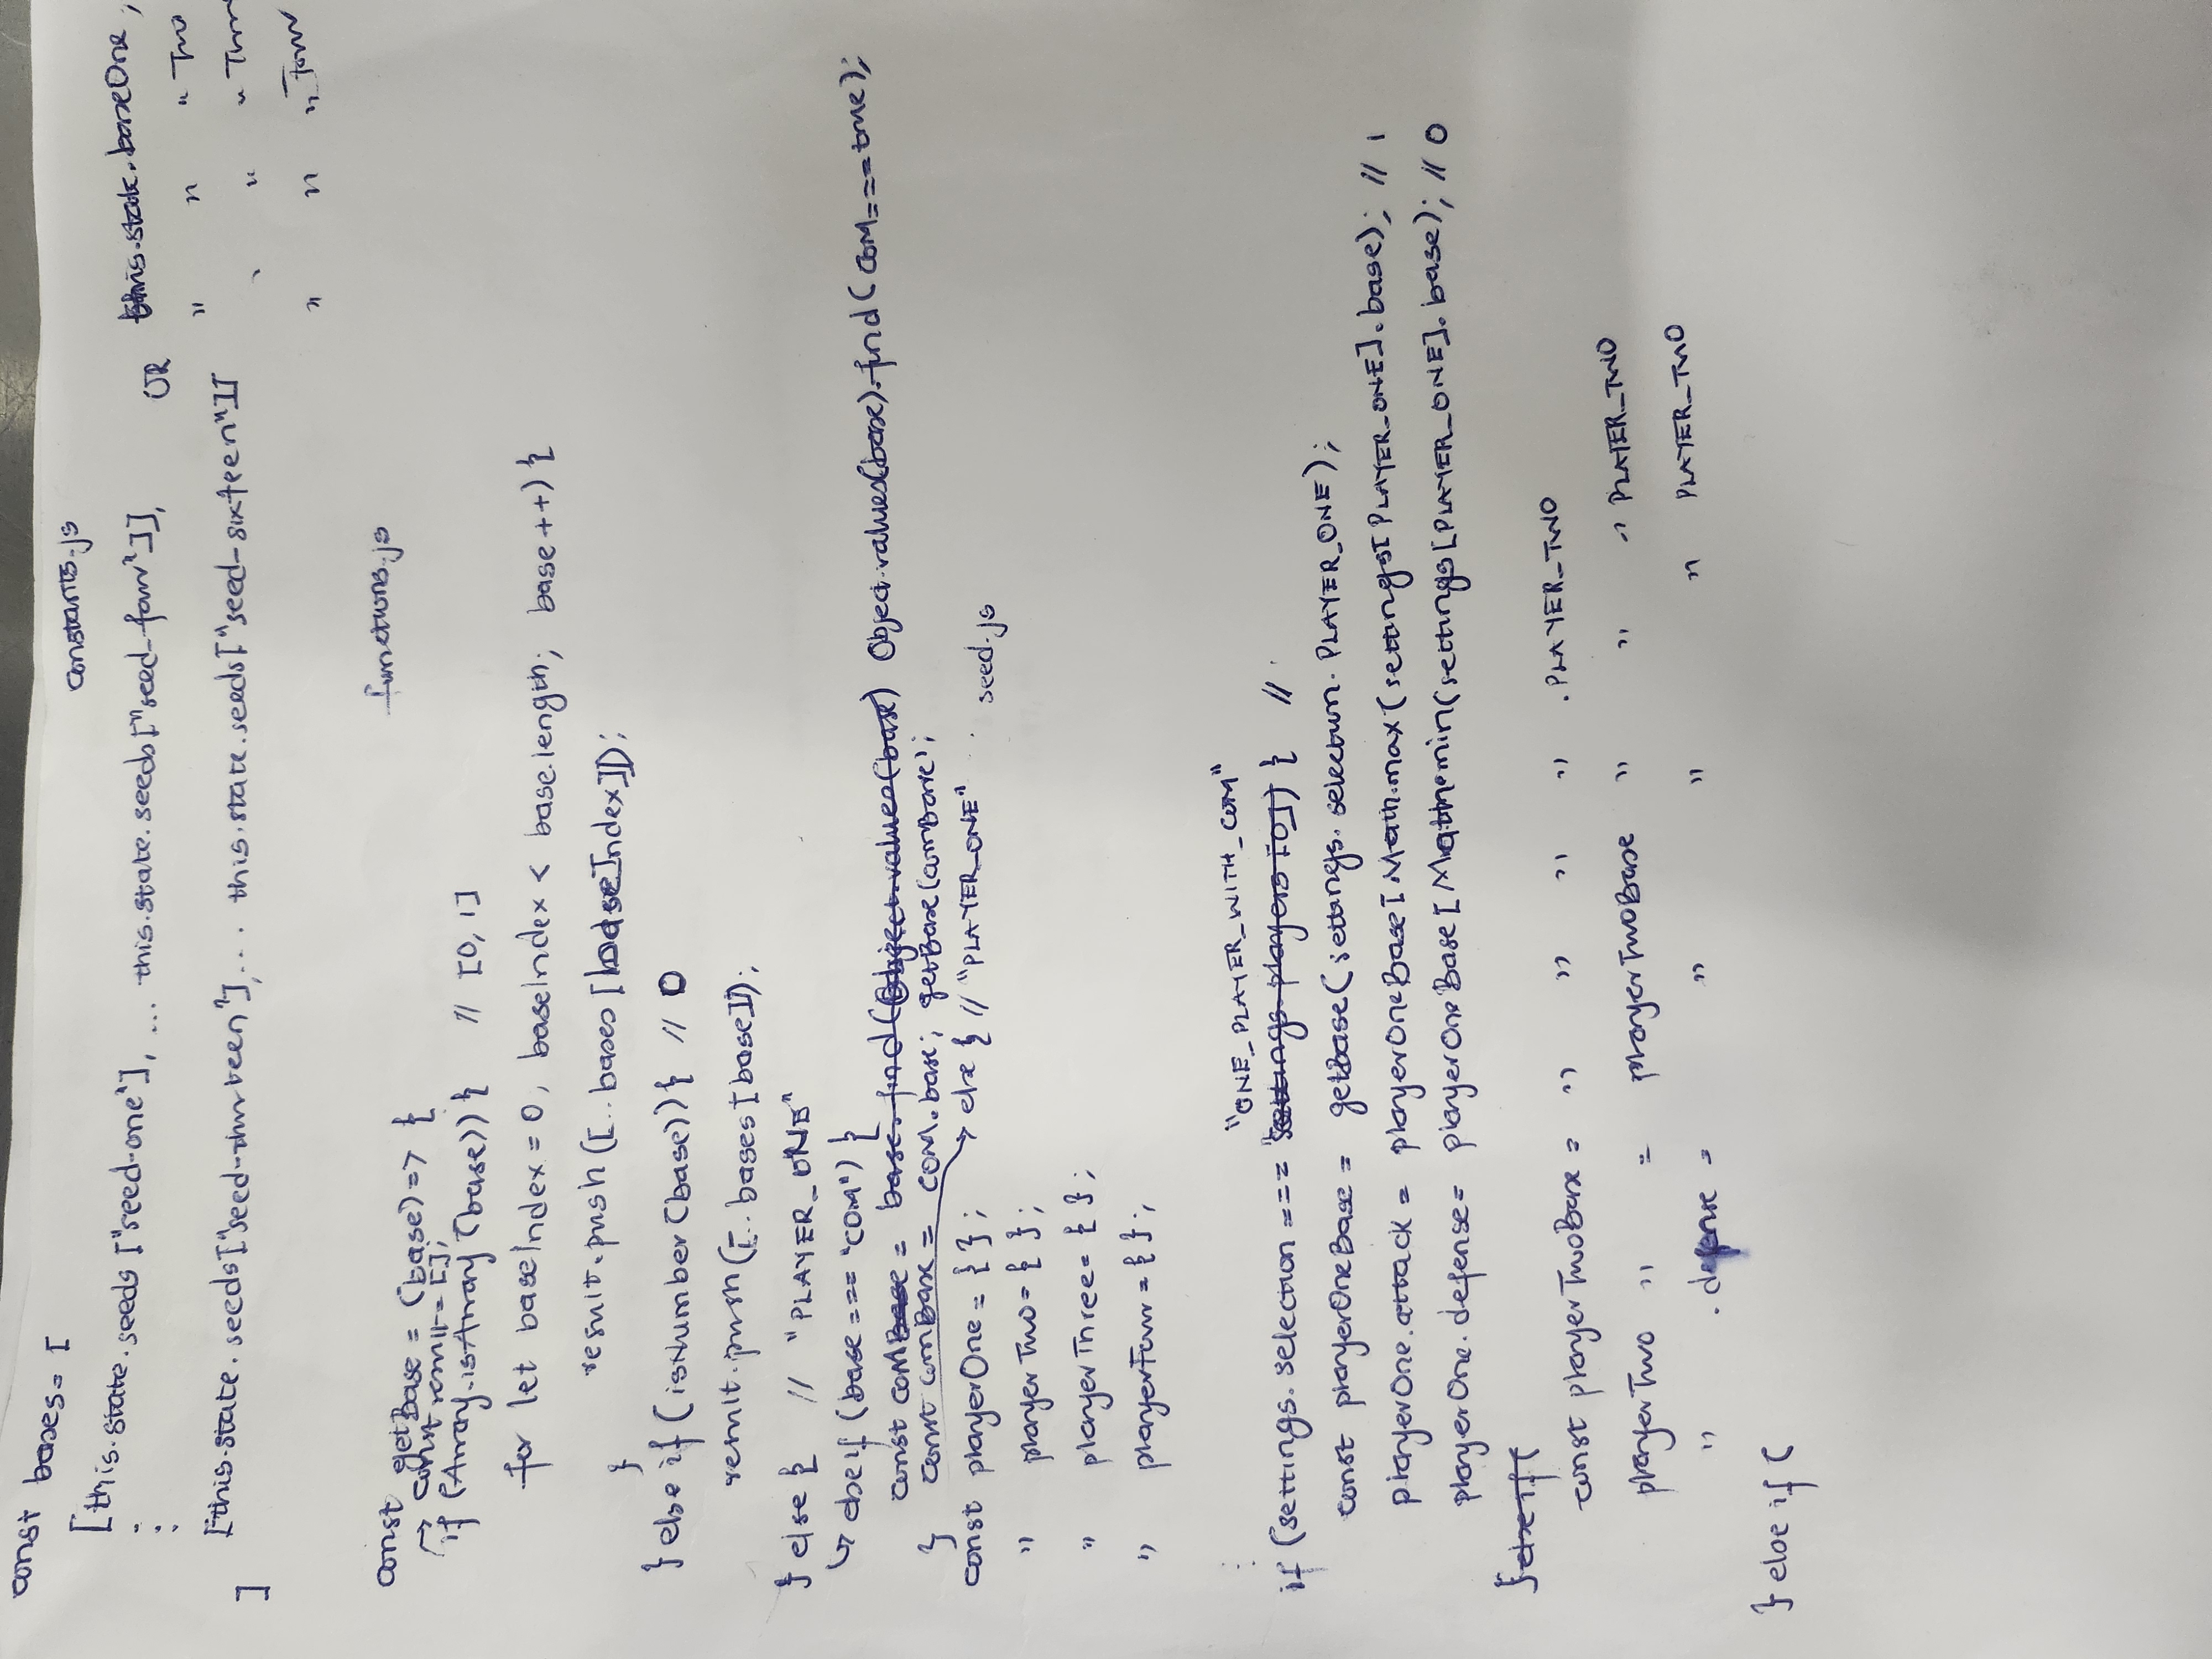 const bases = [
constants.js
[this.state.seeds ["seed-one"], ... this.state.seeds["seed-four"]], OR this.state.baseOne,
:
" " " Two
[this.state.seeds["seed-thirteen"], ... this.state.seeds["seed-sixteen"]]
" "
]
" " " Four
functions.js
const getBase = (base) => {
→ const result = [];
if (Array.isArray(base)) { // [0, 1]
for let baseIndex = 0, baseIndex < base.length; base++) {
result.push([..bases[baseIndex]]);
}
} else if (isNumber(base)) { // 0
result.push([..bases[base]]);
} else { // "PLAYER_ONE"
↳ else if (base === "COM") {
const COMBase = base.find(Object.values(base) Object.values(base).find(COM===true);
} const comBase = COM.base; getBase(comBase);
→ else { // "PLAYER_ONE"
seed.js
const playerOne = { };
" playerTwo = { };
" playerThree = { };
" playerFour = { };
:
"ONE_PLAYER_WITH_COM"
if (settings.selection === settings.players[0]) { //
const playerOneBase = getBase(settings.selection.PLAYER_ONE);
playerOne.attack = playerOneBase[Math.max(settings[PLAYER_ONE].base); // 1
playerOne.defense = playerOneBase[Math.min(settings[PLAYER_ONE].base); // 0
} else if (
const playerTwoBase = " " " " .PLAYER_TWO
playerTwo " = playerTwoBase " " " PLAYER_TWO
" .defense = " " " PLAYER_TWO
} else if (